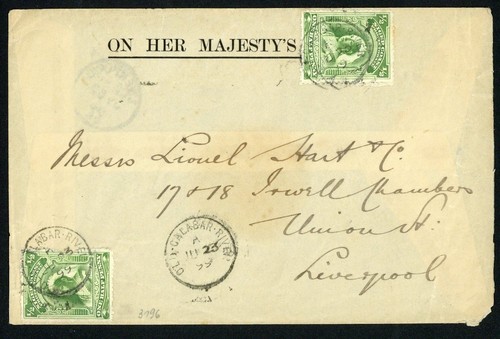 ON HER MAJESTY'S
Messrs Lionel Hart & Co.
17 & 18 Irwell Chambers
Union St.
Liverpool
OLD-CALABAR-RIVER
A
23
99
ALABAR-RIVER
3796